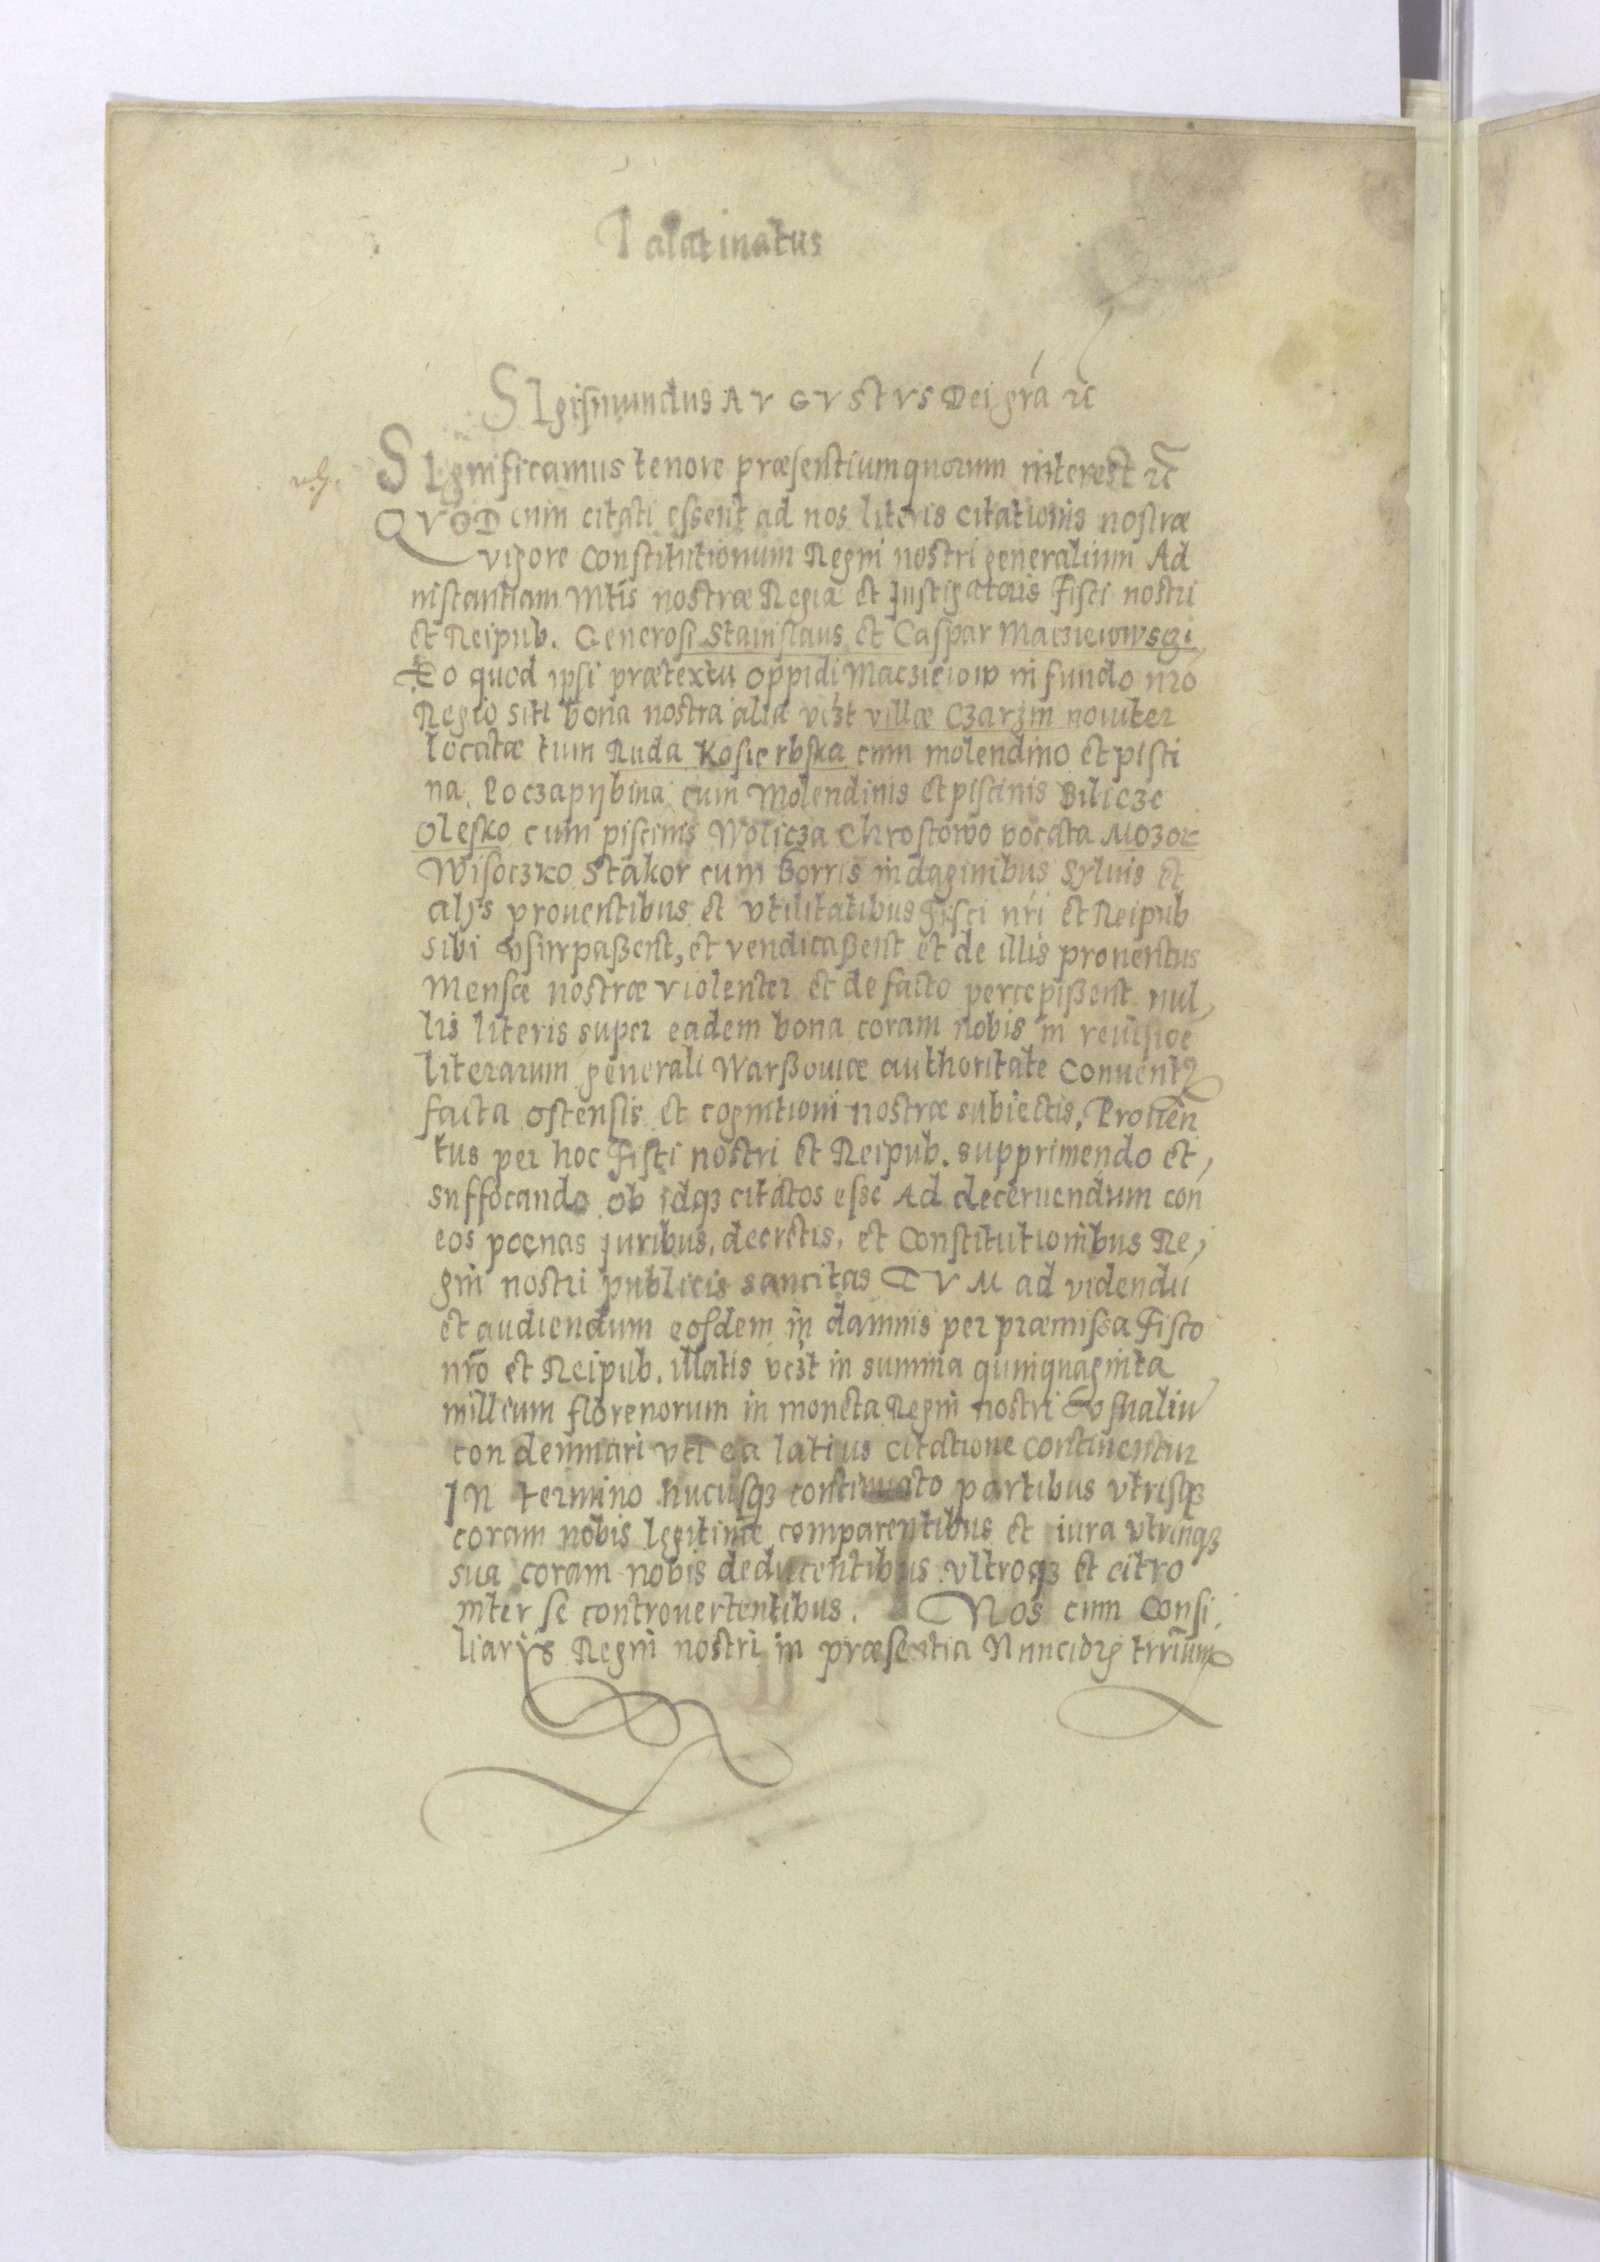 Palatinatus
SIgismundus AVGVSTVS Dei gra etc
SIgnificamus tenore præsentium quorum interest etc
QVOD cum citati essent ad nos literis citationis nostræ
vigore Constitutionum Regni nostri generalium Ad
instantiam Mtis nostræ Regiæ et Instigatoris Fisci nostri
et Reipub. Generosi Stanislaus et Caspar Maczieiowsczi,
Eo quod ipsi prætextu oppidi Macziciow in fundo nro
Regio siti bona nostra alia vczt villæ Czarzin nouiter
locatæ tum Ruda Kosierbska cum molendino et pisci
na, Poczapijbina cum Molendinis et piscinis Bilicze
Olesko cum piscinis Wolicza Chrostowo vocata Mozor
Wisoczko Stakor cum Borris indaginibus Syluis et
alijs prouentibus et vtilitatibus Fisci nri et Reipub
sibi vsurpaßent, et vendicaßent et de illis prouentus
Mensæ nostræ violenter et de facto percepißent nul,
lis literis super eadem bona coram nobis in reuisioe
literarum generali Warßouiæ authoritate Conuentus
facta ostensis et cognitioni nostræ subiectis, Prouen
tus per hoc Fisci nostri et Reipub. supprimendo et,
suffocando ob idqz citatos esse Ad decernendum con
eos poenas juribus, decretis, et Constitutionibus Re,
gni nostri publicis sancitas TVM ad videndu
et audiendum eosdem in damnis per præmissa Fisco
nro et Reipub. illatis vczt in summa quinquaginta
millium florenorum in moneta Regni nostri vsualiu
condemnari vti ea latius citatione continentur
IN termino hucusqz continuato partibus vtrisqz
coram nobis legitime comparentibus et iura vtrinqz
sua coram nobis deducentibus vltroqz et citro
inter se controuertentibus. Nos cum Consi
liarijs Regni nostri in præsentia Nunciorum trrium